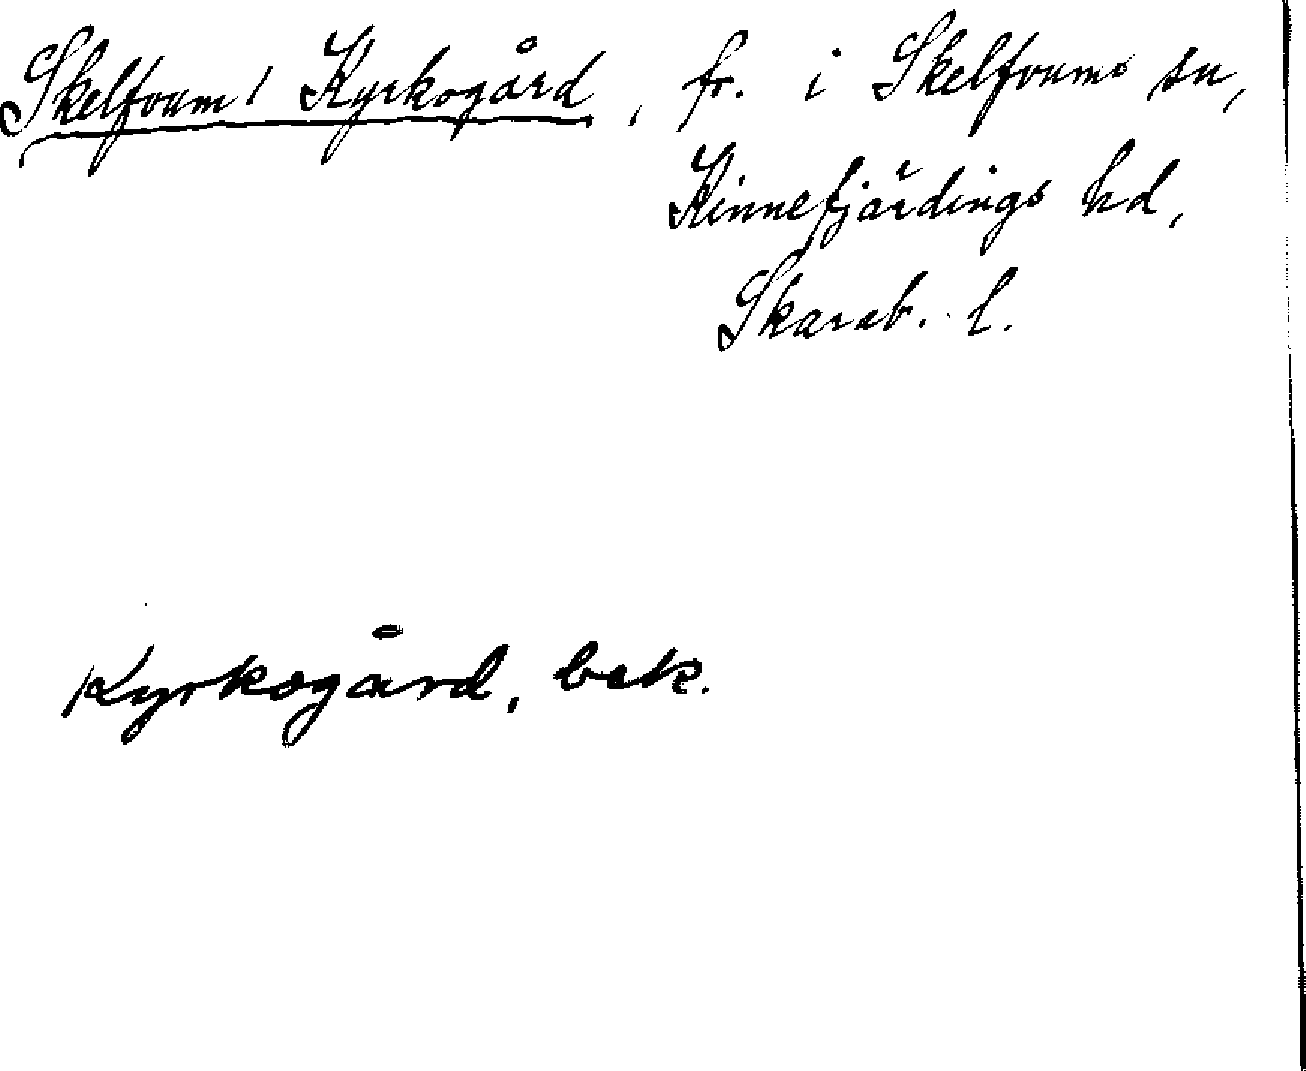 Skelfvums Kyrkogård, fr. i Skelfvums sn,
Kinnefjärdings hd,
Skarab. l.
Kyrkogård, bek.